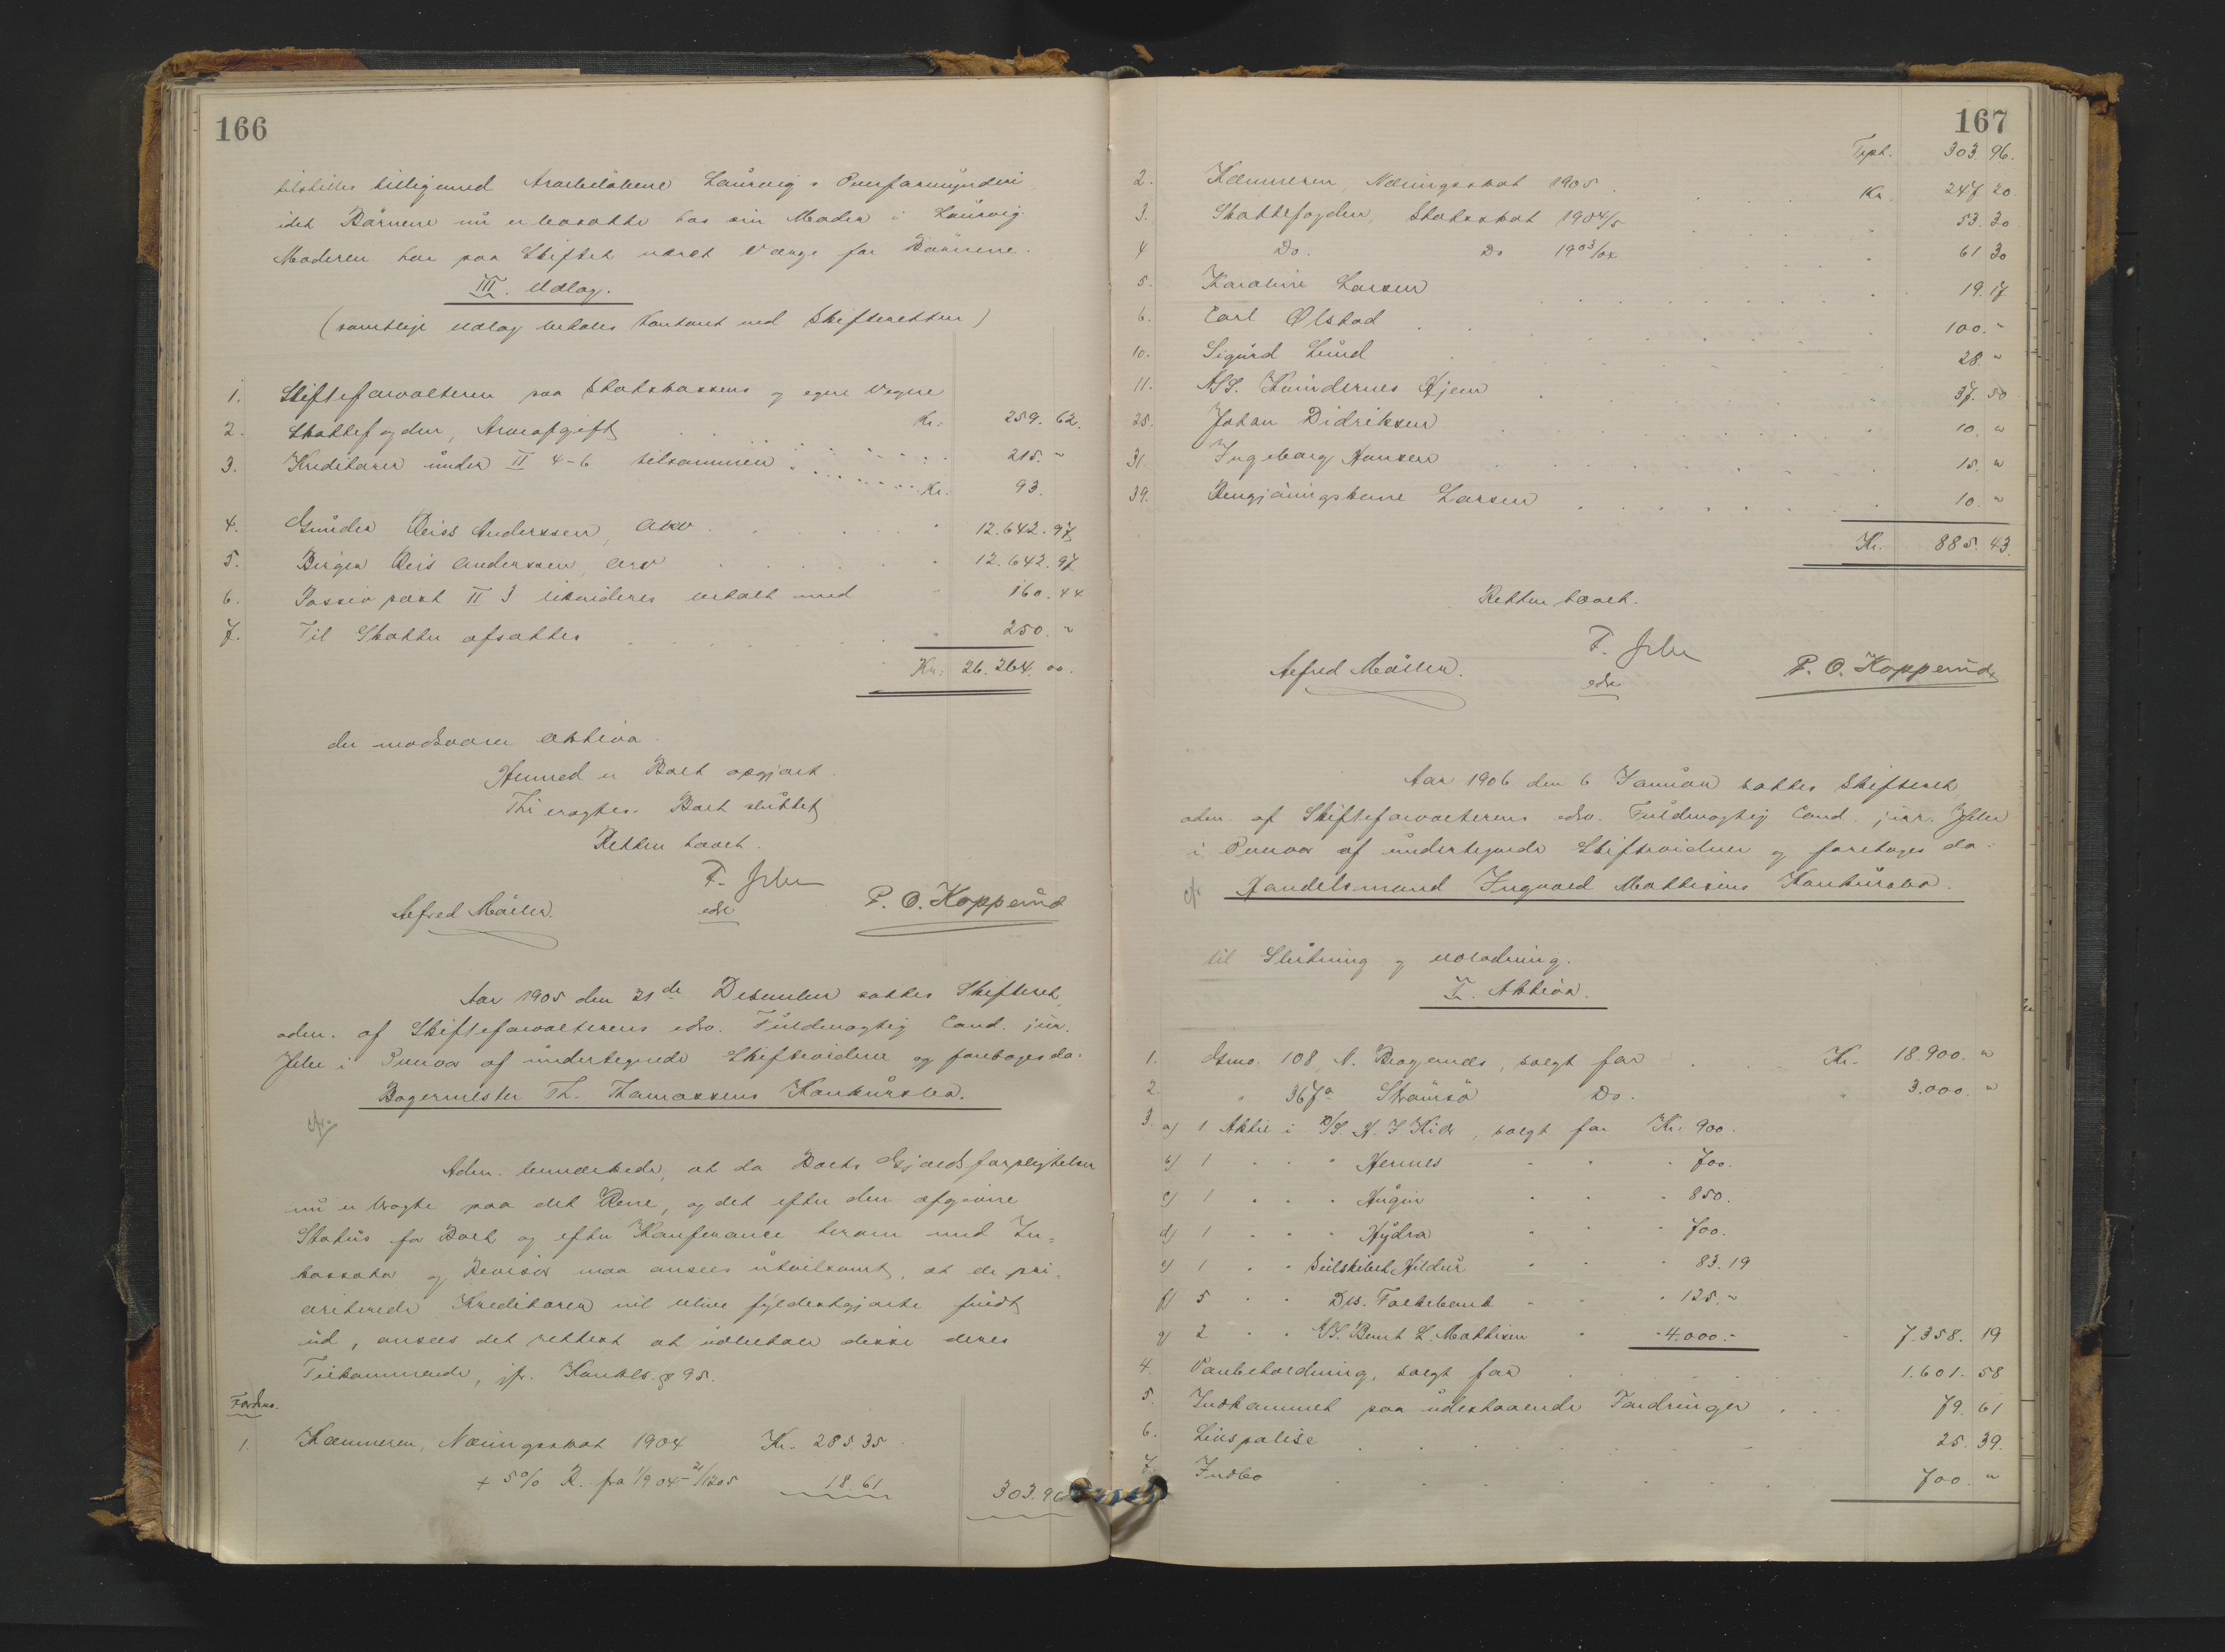 166
tilstilles tilligemed Arvebeløbene Laurvig's Overformynderi,
idet Børnene nu er bosatte hos sin Moder i Laurvig.
Moderen har paa Skiftet været Værge for Børnene.
III. Udlæg.
(samtlige Udlæg betales kontant ved Skifteretten)
1. Skifteforvalteren paa Statskassens og egne Vegne Kr. 259. 62.
2. Skattefogden, Arveafgift 215. "
3. Kreditorer under II 4-6 tilsammen Kr. 93.
4. Gunder Reiss Anderssen, Arv 12.642. 97
5. Birger Reis Anderssen, Arv 12.642. 97
6. Passiv post II 3 likvideres betalt med 160. 44
7. Til Skatter afsættes 250. "
Kr. 26.264. 00.
der modsvarer Aktiva.
Hermed er Boet opgjort.
Thi eragtes: Boet sluttet
Retten hævet.
F. Jelu
Alfred Møller. edsv P. O. Kopperud
Aar 1905 den 21de Desember sattes Skifteret,
adm. af Skifteforvalterens edsv. Fuldmægtig Cand. jur.
Jelu i Overvær af undertegnede Skiftevidner og foretoges da:
Bagermester Th. Thomassens Konkursbo.
cfr.
Adm. bemærkede, at da Boets Gjældsforpligtelser
nu er bragte paa det Rene, og det efter den afgivne
Status for Boet og efter Konferance herom med In-
kassator og Revisor maa ansees utvilsomt, at de pri-
oriterede Kreditorer vil blive fyldestgjorte fuldt
ud, ansees det rettest at udbetale disse deres
Tilkommende, jfr. Konklv. § 95.
Fordno.
1. Kæmneren, Næringsskat 1904 Kr. 285.35
+ 5% R. fra 1/9 04 - 21/12 05 18.61 303.96
167
Trpt. 303. 96.
2. Kæmneren, Næringsskat 1905 Kr. 247. 20
3. Skattefogden, Statsskat 1904/5 53. 30
4 Do. Do 1903/04 61. 30
5. Karoline Larsen 19. 17
6. Carl Ølstad 100. "
10. Sigurd Lund 28 "
11. A/S. Kvindernes Hjem 37. 50
25. Johan Didriksen 10. "
31. Ingeborg Hansen 15. "
39. Rengjøringskone Larsen 10. "
Kr. 885. 43.
Retten hævet.
F. Jelu
Alfred Møller. edsv P. O. Kopperud
Aar 1906 den 6 Januar sattes Skifteret
adm. af Skifteforvalterens edsv. Fuldmægtig Cand. jur. Jelu
i Overvær af undertegnede Skiftevidner og foretoges da:
cfr. Handelsmand Ingvald Mathisens Konkursbo.
til Slutning og udlodning.
I. Aktiva.
1. Gmo. 108 N. Bragernæs, solgt for Kr. 18.900. "
2 " 367a Strømsø Do. " 3.000. "
3. a) 1 Aktie i D/S. A. I Kiær, solgt for Kr. 900.
b) 1 " " " Hermes " " " 700.
c) 1 " " " Hugin " " " 850.
d) 1 " " " Hydra " " " 700.
e) 1 " " Seilskibet Hildur " " " 83.19
f) 5 " " Drs. Folkebank " " 125. "
g) 2 " " A/S. Bernt L. Mathisen " - 4.000. - " 7.358. 19
4. Varebeholdning, solgt for 1.601. 58
5. Indkommet paa udestaaende Fordringer 79. 61
6. Livspolise 25. 39.
7. Indbo 700. "